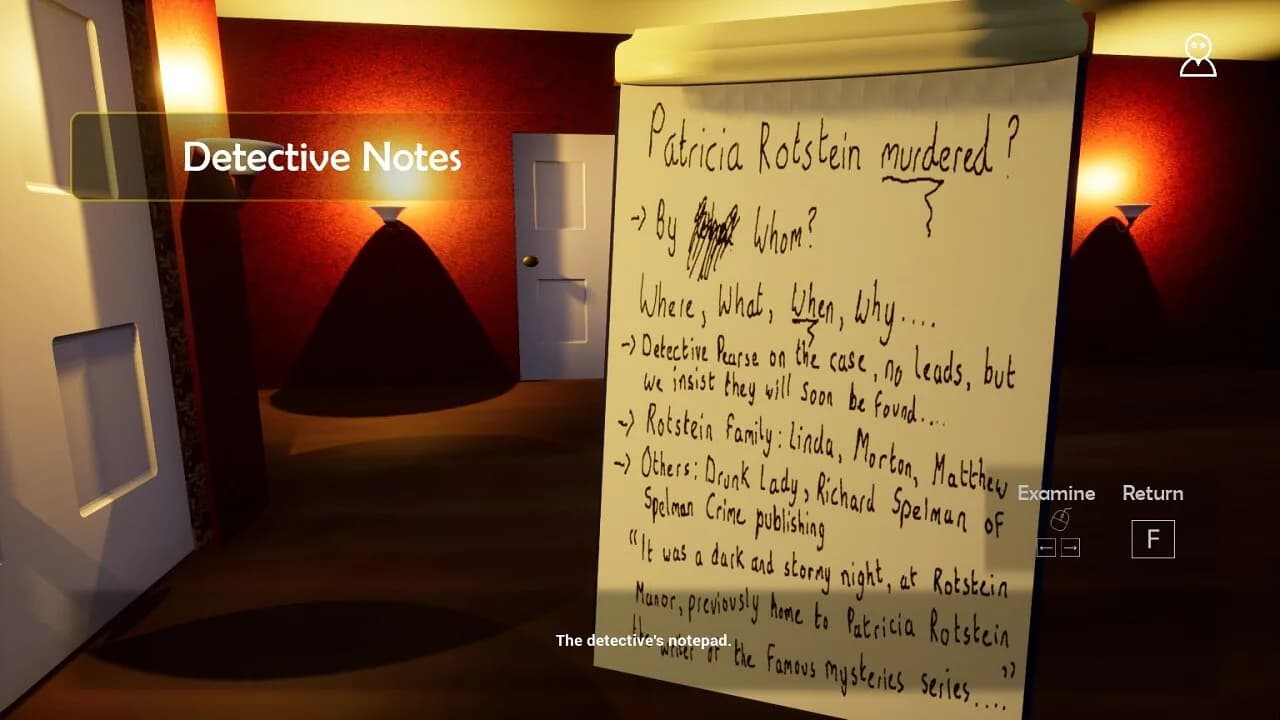 Detective Notes
Patricia Rotstein murdered?
-> By Whom?
Where, What, When, Why....
-> Detective Pearse on the case, no leads, but
we insist they will soon be found....
-> Rotstein Family: Linda, Morton, Matthew
-> Others: Drunk Lady, Richard Spelman of
Spelman Crime publishing
"It was a dark and stormy night, at Rotstein
Manor, previously home to Patricia Rotstein
the writer of the famous mysteries series...."
Examine
Return
F
The detective's notepad.